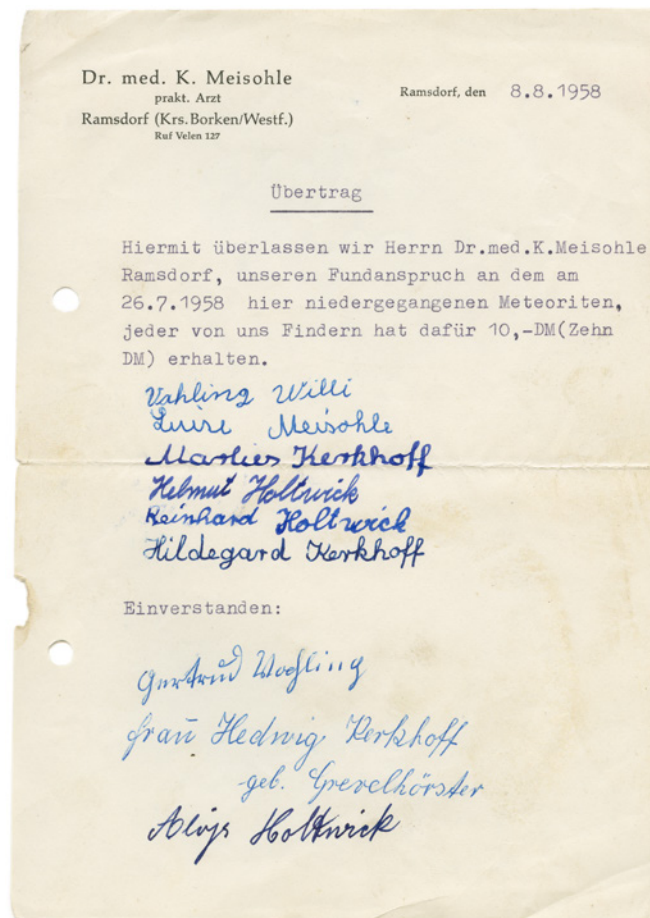 Dr. med. K. Meisohle
prakt. Arzt
Ramsdorf (Krs. Borken/Westf.)
Ruf Velen 127
Ramsdorf, den 8.8.1958
Übertrag
Hiermit überlassen wir Herrn Dr.med.K.Meisohle
Ramsdorf, unseren Fundanspruch an dem am
26.7.1958 hier niedergegangenen Meteoriten,
jeder von uns Findern hat dafür 10,-DM(Zehn
DM) erhalten.
Vahling Willi
Luise Meisohle
Marlies Kerkhoff
Helmut Holtwick
Reinhard Holtwick
Hildegard Kerkhoff
Einverstanden:
Gertrud Vahling
Frau Hedwig Kerkhoff
geb. Grevelhörster
Aloys Holtwick